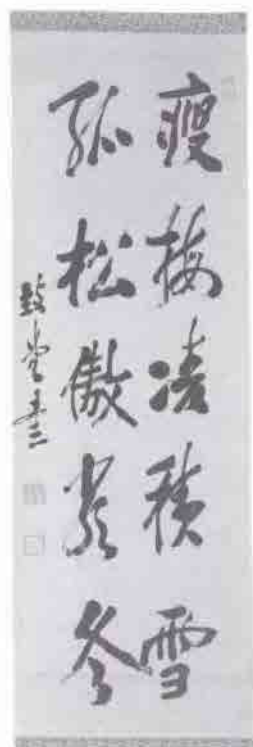 瘦梅凌積雪
孤松傲嚴冬
堂書